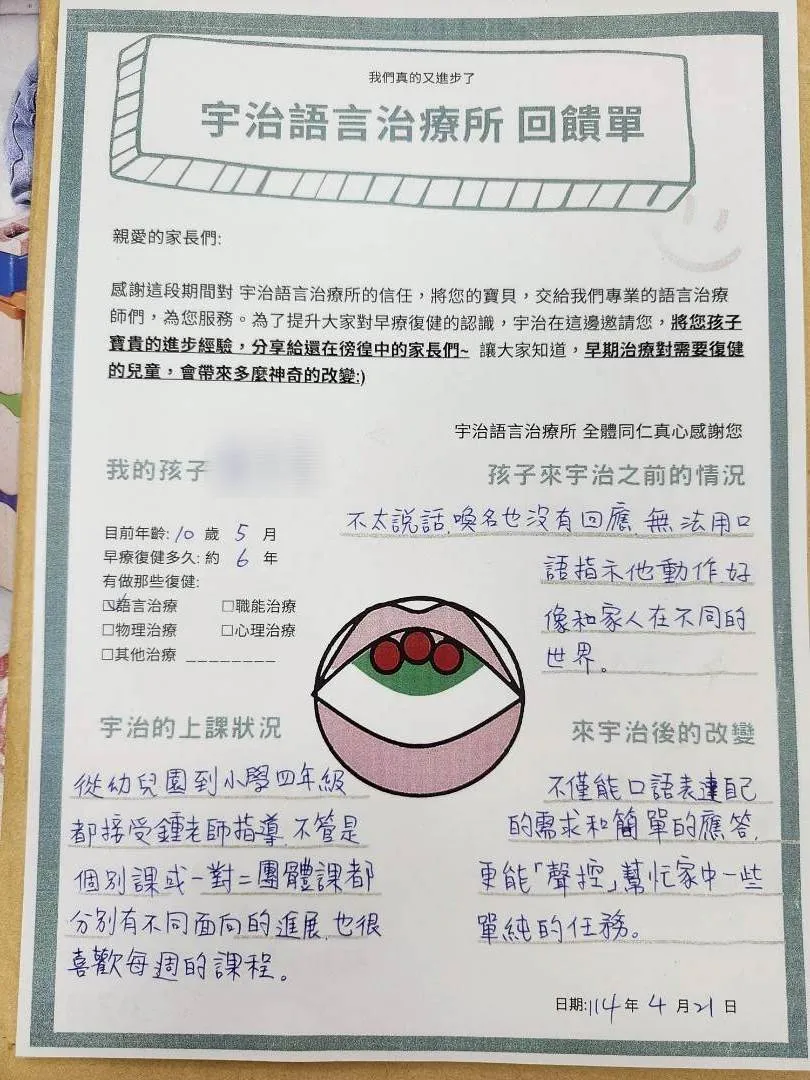 我們真的又進步了
宇治語言治療所 回饋單
親愛的家長們:
感謝這段期間對 宇治語言治療所的信任，將您的寶貝，交給我們專業的語言治療
師們，為您服務。為了提升大家對早療復健的認識，宇治在這邊邀請您，將您孩子
寶貴的進步經驗，分享給還在徬徨中的家長們~ 讓大家知道，早期治療對需要復健
的兒童，會帶來多麼神奇的改變:)
宇治語言治療所 全體同仁真心感謝您
我的孩子
目前年齡: 10 歲 5 月
早療復健多久: 約 6 年
有做那些復健:
☑語言治療 □職能治療
□物理治療 □心理治療
□其他治療 _________
孩子來宇治之前的情況
不太說話,喚名也沒有回應,無法用口
語指示他動作,好
像和家人在不同的
世界。
宇治的上課狀況
從幼兒園到小學四年級
都接受鍾老師指導,不管是
個別課或一對二團體課都
分別有不同面向的進展,也很
喜歡每週的課程。
來宇治後的改變
不僅能口語表達自己
的需求和簡單的應答,
更能「聲控」幫忙家中一些
單純的任務。
日期:114年 4 月 21 日